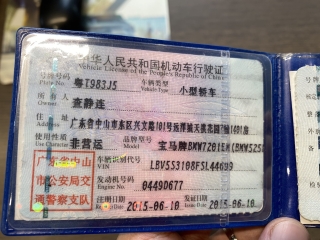 中华人民共和国机动车行驶证
Vehicle License of the People's Republic of China
号牌号码 Plate No. 粤T983J5 车辆类型 Vehicle Type 小型轿车
所有人 Owner 查静连
住址 广东省中山市东区兴文路101号远洋城天祺花园
使用性质 非营运 品牌型号 宝马牌BMW7201
广东省中山市公安局交通警察支队
车辆识别代号 VIN LBV5S3108FSL44699
发动机号码 Engine No. 0449D677
注册日期 2015-06-10 发证日期 2015-06-10